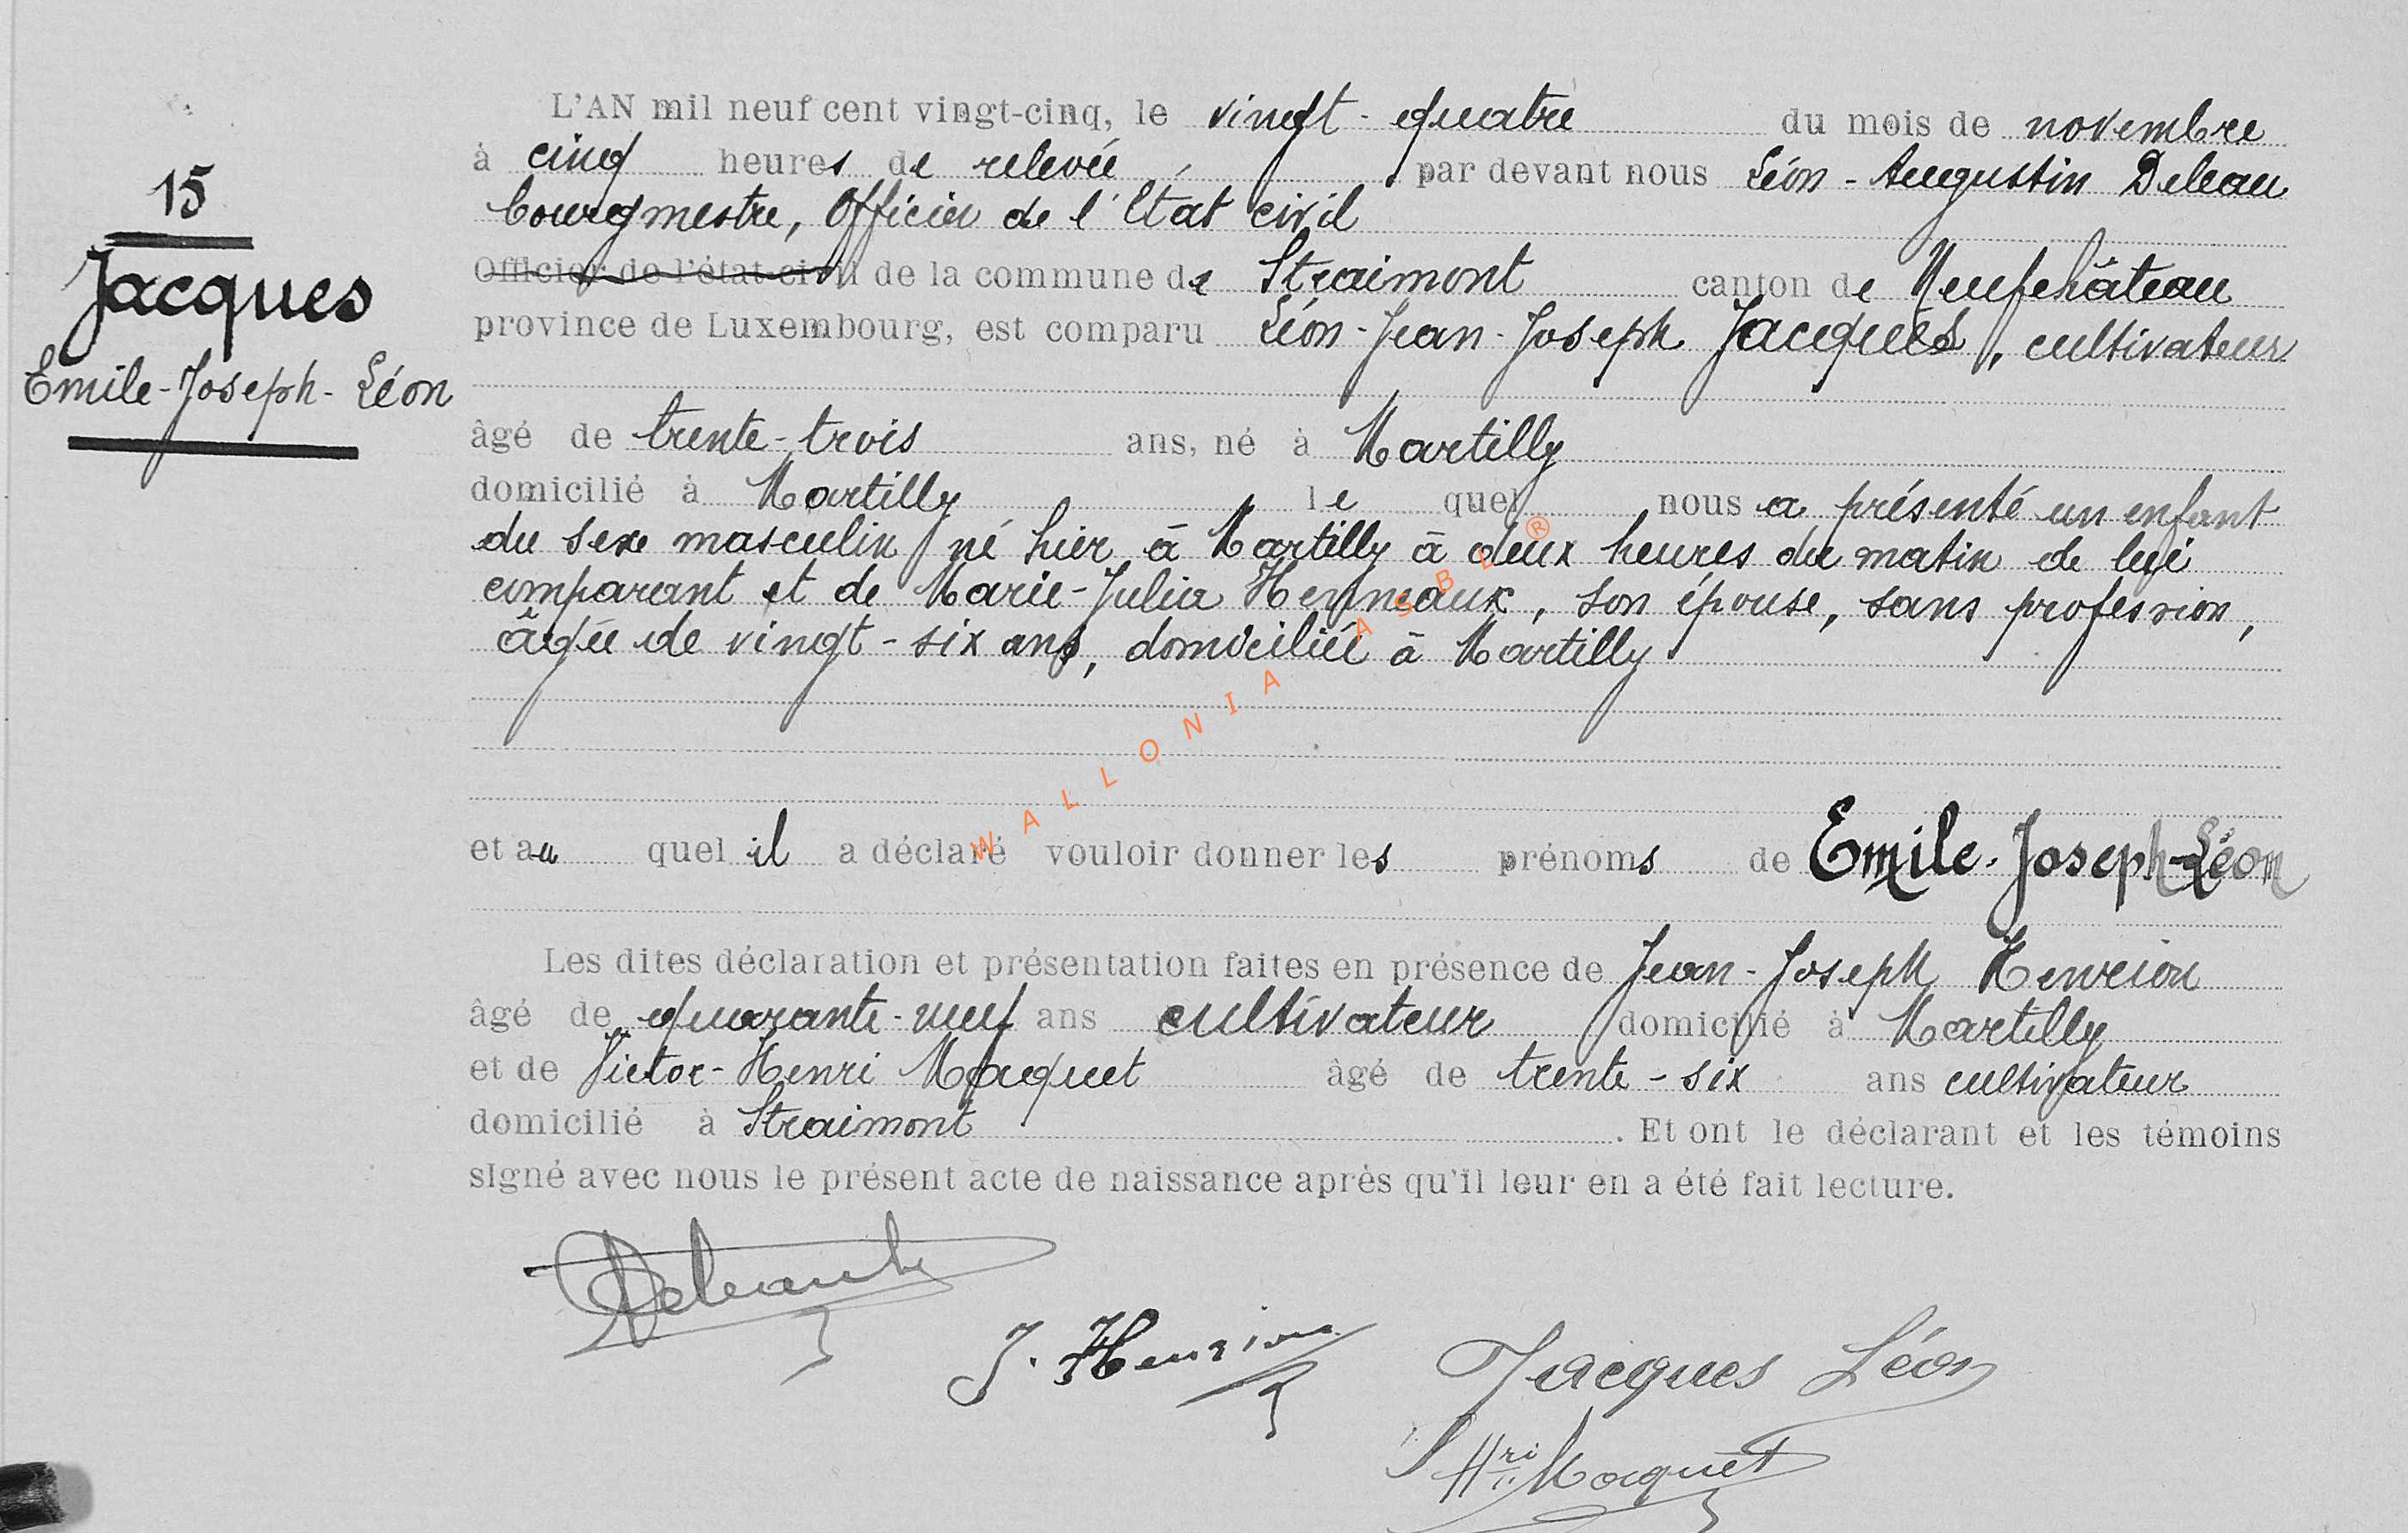 15
Jacques
Emile-Joseph-Léon
L'AN mil neuf cent vingt-cinq, le vingt-quatre du mois de novembre
à cinq heures de relevée, par devant nous Léon-Augustin Deleau
bourgmestre, Officier de l'Etat civil
Officier de l'état-civil de la commune de Straimont canton de Neufchâteau
province de Luxembourg, est comparu Léon-Jean-Joseph Jacques, cultivateur
âgé de trente-trois ans, né à Martilly
domicilié à Martilly le quel nous a présenté un enfant
du sexe masculin né hier à Martilly à deux heures du matin de lui
comparant et de Marie-Julia Henneaux, son épouse, sans profession,
âgée de vingt-six ans, domiciliée à Martilly
et au quel il a déclaré vouloir donner les prénoms de Emile-Joseph-Léon
Les dites déclaration et présentation faites en présence de Jean-Joseph Henrion
âgé de quarante-neuf ans cultivateur domicilié à Martilly
et de Victor-Henri Maquet âgé de trente-six ans cultivateur
domicilié à Straimont. Et ont le déclarant et les témoins
signé avec nous le présent acte de naissance après qu'il leur en a été fait lecture.
J. Henrion
Jacques Léon
Hri Maquet
WALLONIA ASBL ®